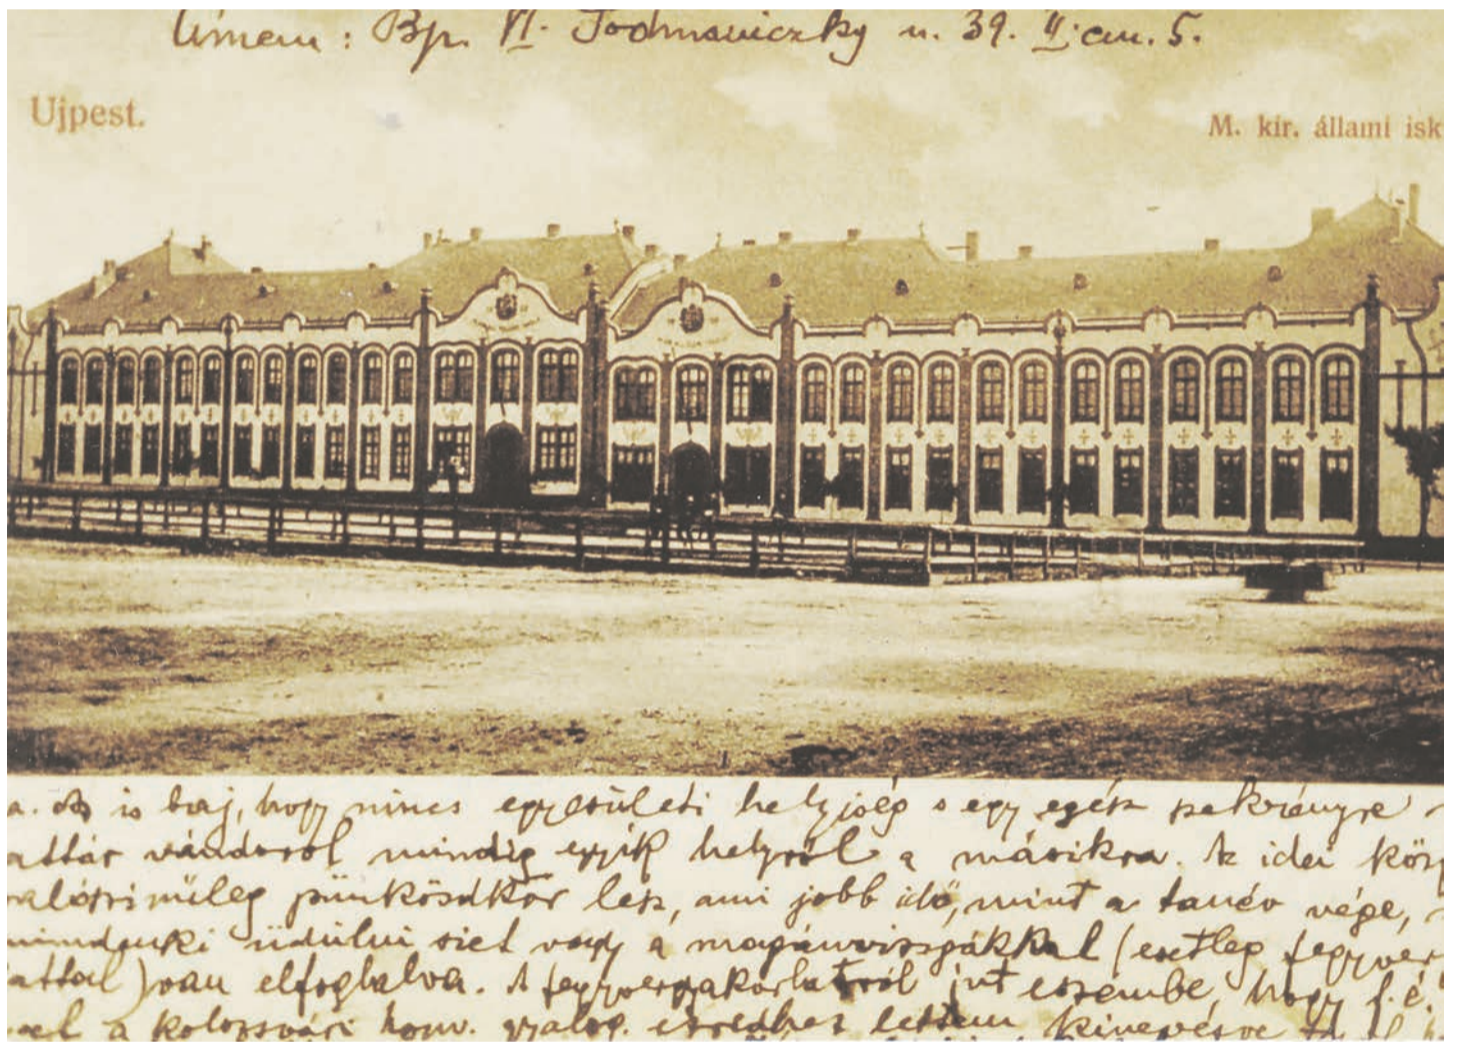 Címem : Bp. VI. Podmaniczky u. 39. II. em. 5.
Ujpest.
M. kir. állami isk
a. Az is baj, hogy nincs egyesületi helyiség s egy egész szekrényre
attár vándorol mindig egyik helyről a másikra. Az idei köz
valószinűleg pünkösdkor lesz, ami jobb idő, mint a tanév vége,
mindenki üdülni siet vagy a magánvizsgákkal (esetleg fegyver
attal) van elfoglalva. A fegyvergyakorlatról jut eszembe, hogy f. é.
a kolozsvári honv. gyalog. ezredhez lettem kinevezve